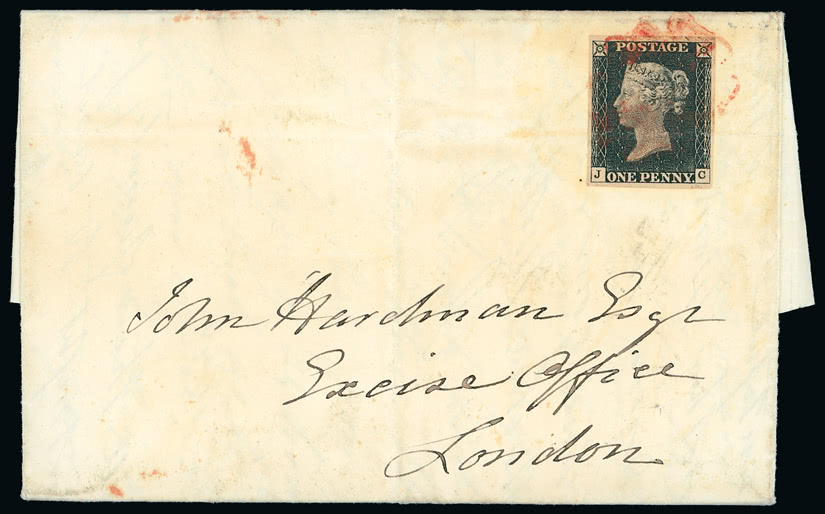 POSTAGE
J ONE PENNY. C
John Hardman Esqr
Excise Office
London